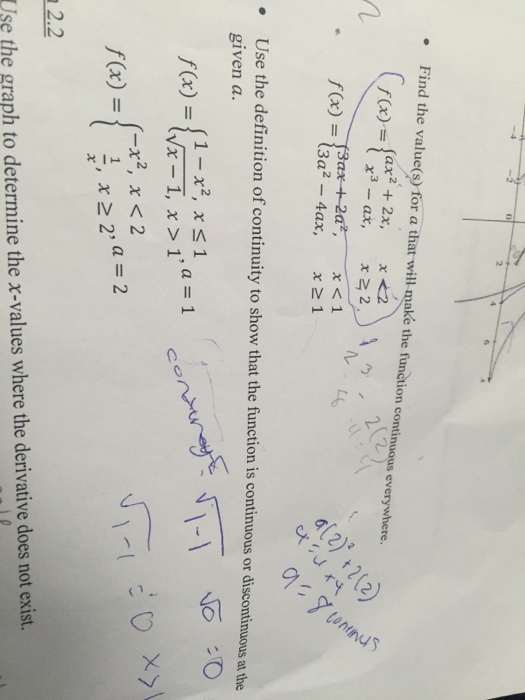 -4
-2
0
2
4
6
• Find the value(s) for a that will make the function continuous everywhere.
f(x) = { ax² + 2x, x < 2
x³ − ax, x ≥ 2
f(x) = { 3ax + 2a², x < 1
3a² − 4ax, x ≥ 1
a(2)² + 2(2)
a = 8
• Use the definition of continuity to show that the function is continuous or discontinuous at the
given a.
f(x) = { 1 − x², x ≤ 1
√x − 1, x > 1 , a = 1
√1-1 √0 = 0
f(x) = { −x², x < 2
1/x, x ≥ 2 , a = 2
√1-1 = 0 x>1
2.2
Use the graph to determine the x-values where the derivative does not exist.